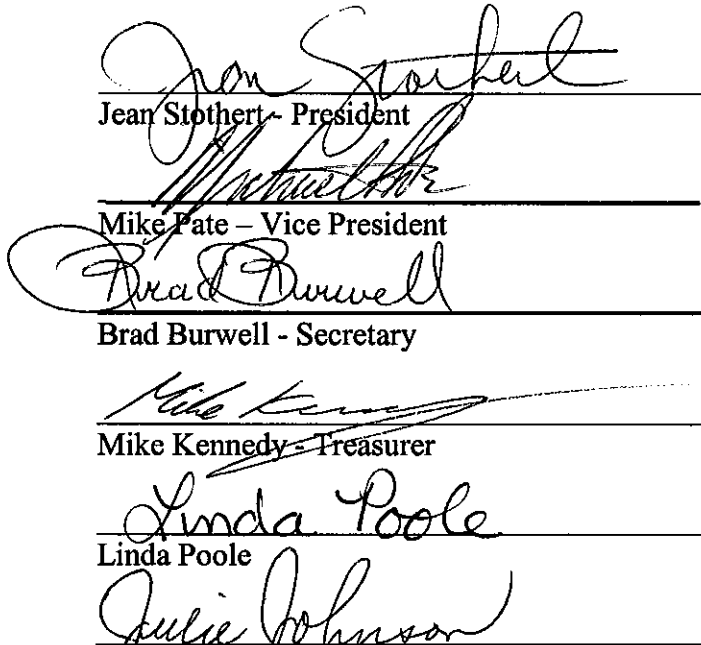 Jean Stothert
Jean Stothert - President
Michael Pate
Mike Pate – Vice President
Brad Burwell
Brad Burwell - Secretary
Mike Kennedy
Mike Kennedy - Treasurer
Linda Poole
Linda Poole
Julie Johnson